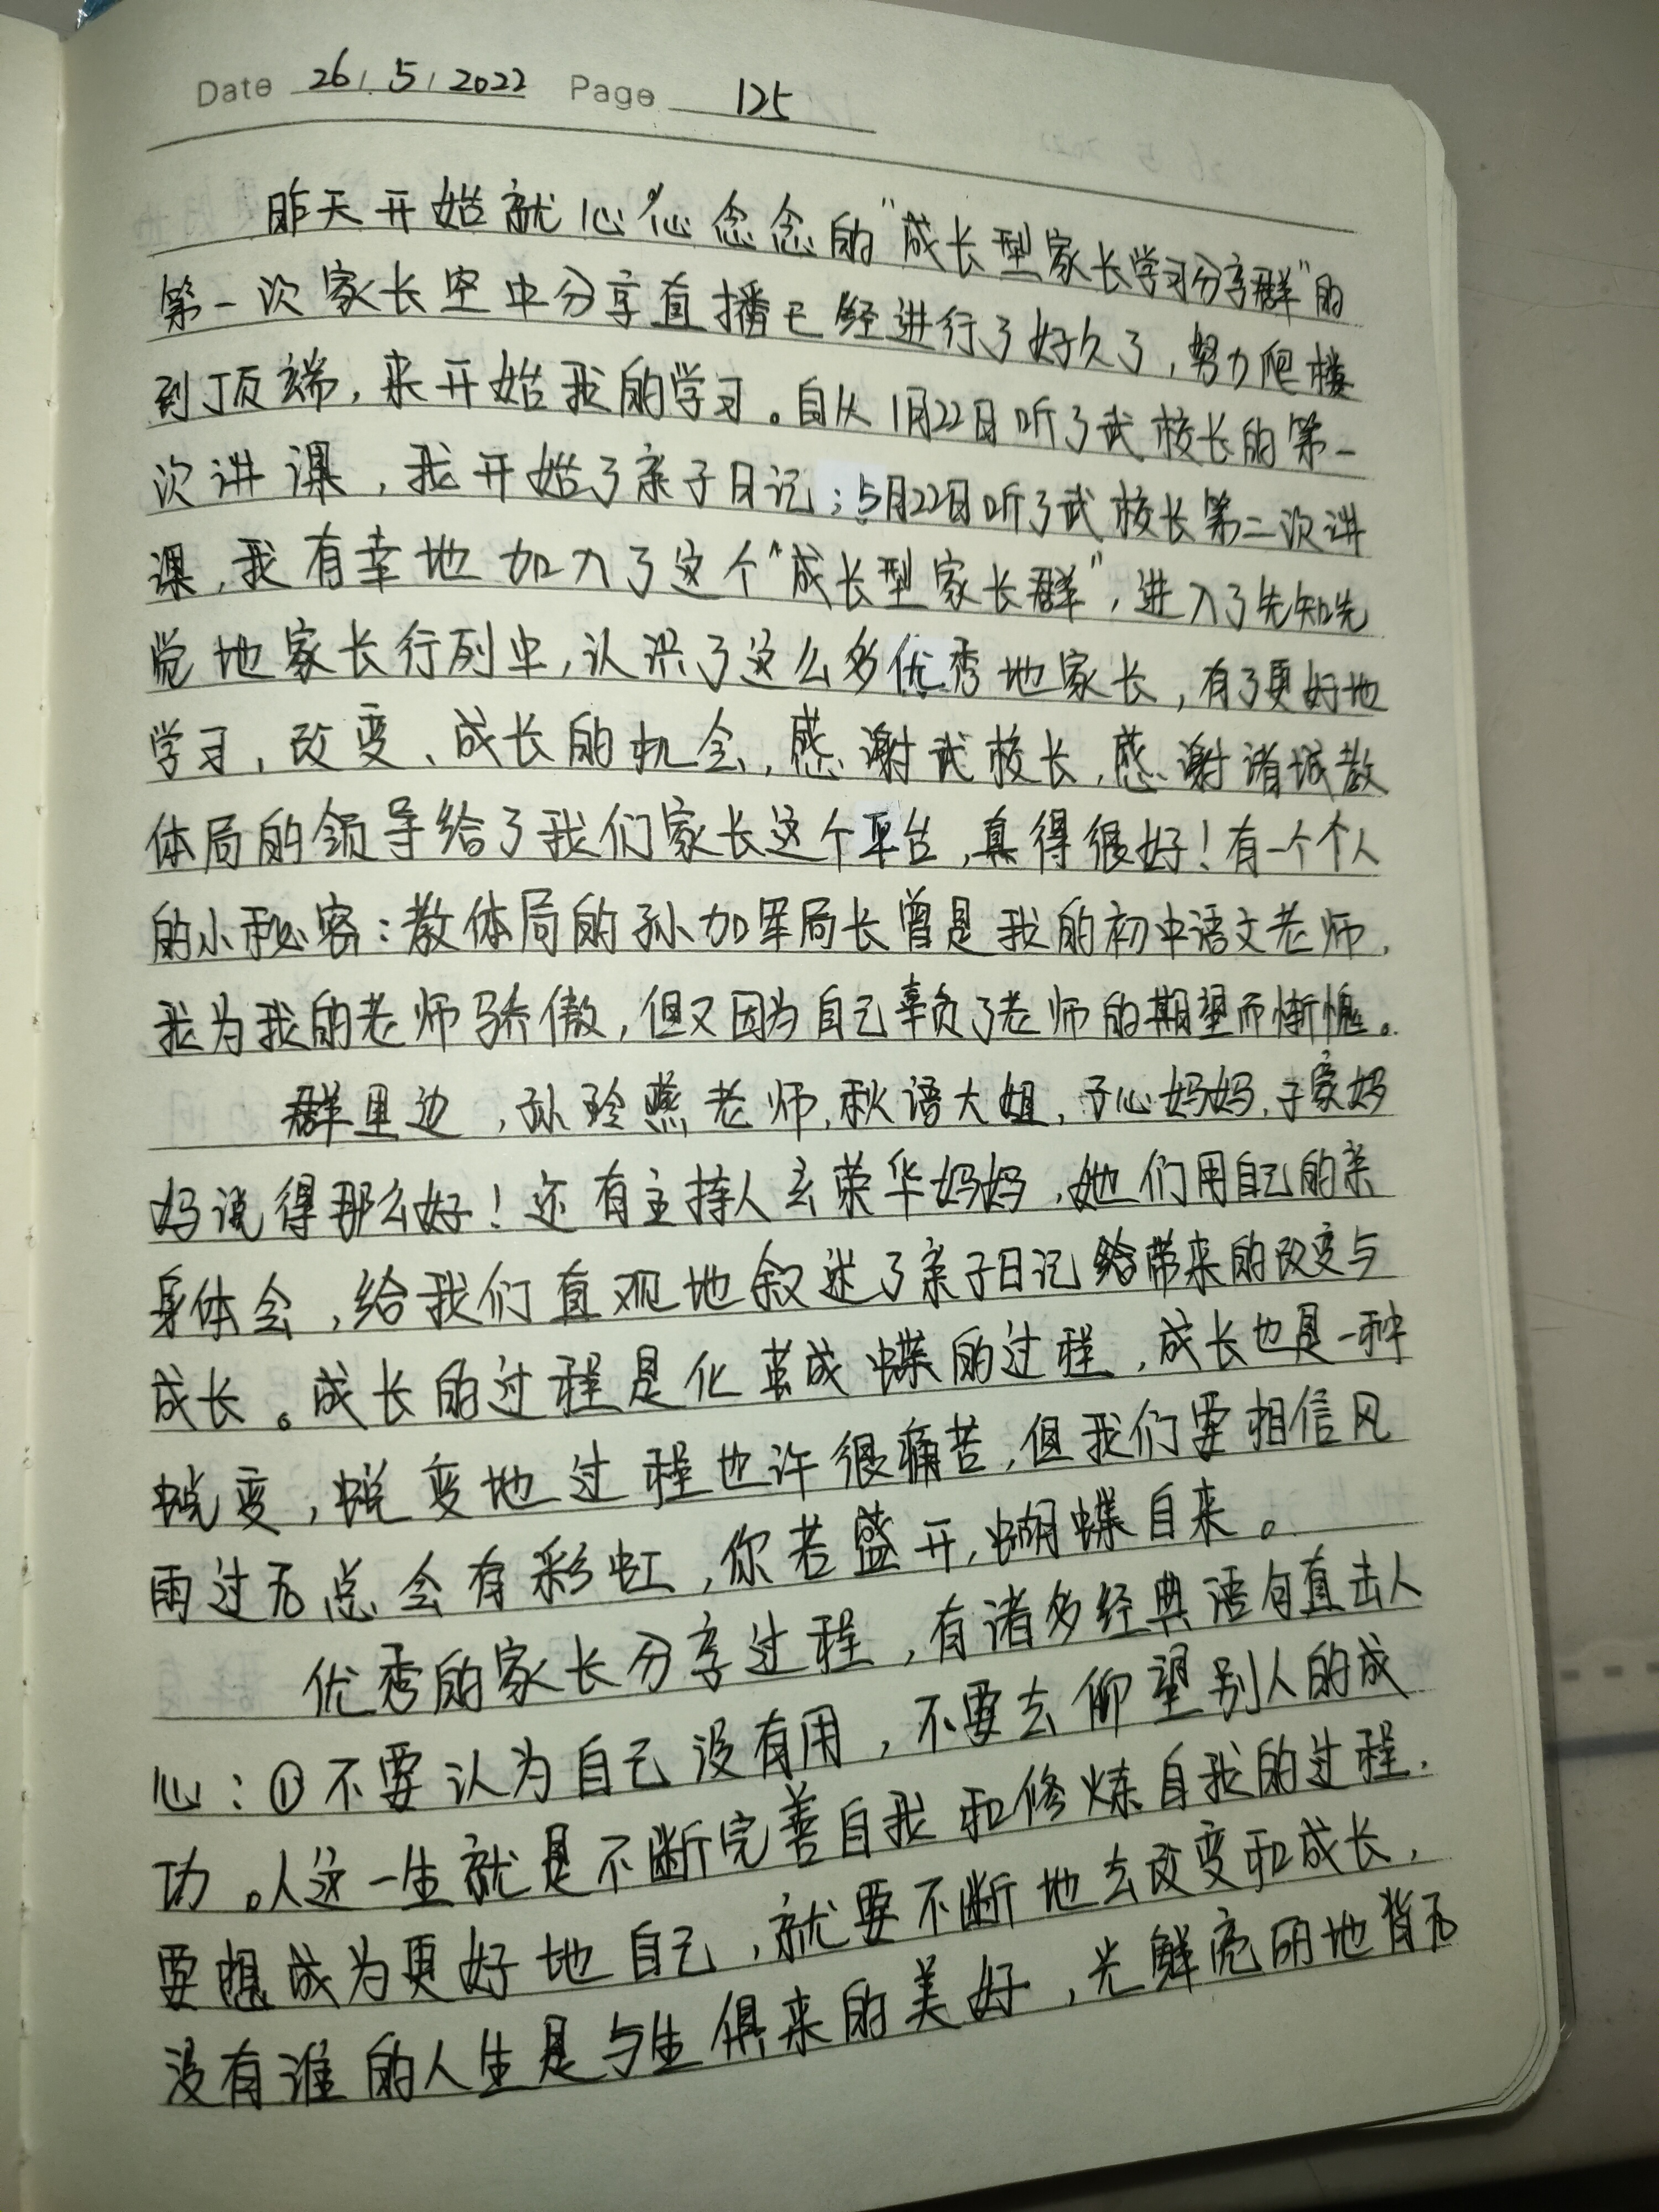 Date 26/5/2022 Page 125
昨天开始就心心念念的"成长型家长学习分享群"的
第一次家长空中分享直播已经进行了好久了,努力爬楼
到顶端,来开始我的学习。自从1月22日听了武校长的第一
次讲课,我开始了亲子日记;5月22日听了武校长第二次讲
课,我有幸地加入了这个"成长型家长群",进入了先知先
觉地家长行列中,认识了这么多优秀地家长,有了更好地
学习、改变、成长的机会,感谢武校长,感谢诸城教
体局的领导给了我们家长这个平台,真得很好!有一个个人
的小秘密:教体局的孙加军局长曾是我的初中语文老师,
我为我的老师骄傲,但又因为自己辜负了老师的期望而惭愧。
群里边,孙玲燕老师,秋语大姐,子心妈妈,子家妈
妈说得那么好!还有主持人玄荣华妈妈,她们用自己的亲
身体会,给我们直观地叙述了亲子日记给带来的改变与
成长。成长的过程是化茧成蝶的过程,成长也是一种
蜕变,蜕变地过程也许很痛苦,但我们要相信风
雨过后总会有彩虹,你若盛开,蝴蝶自来。
优秀的家长分享过程,有诸多经典语句直击人
心:①不要认为自己没有用,不要去仰望别人的成
功。人这一生就是不断完善自我和修炼自我的过程,
要想成为更好地自己,就要不断地去改变和成长,
没有谁的人生是与生俱来的美好,光鲜亮丽地背后